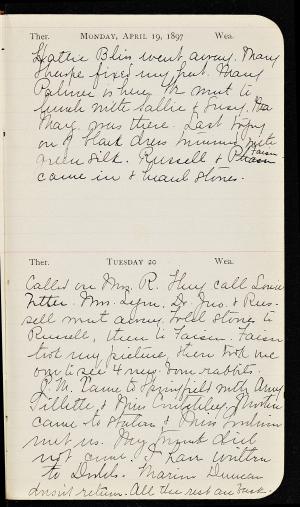 Ther. MONDAY, APRIL 19, 1897 Wea.
Hattie Bliss went away. Mary
Sharpe fixed my hat. Mary
Palmer is here. We went to
lunch with Sallie & Susy.
Marg. was there. Last
on of black dress trimmed with
green silk. Russell &
came in & heard stories.
Ther. TUESDAY 20 Wea.
Called on Mrs. R. They call Louise
Mrs. Lynn, Dr. Jno. & Rus-
sell went away. Told stories to
Russell, then to Faison. Faison
took my picture, then took me
over to see 4 new born rabbits.
J. M. came to Springfield with Amy
Tillette, & Miss
came to station & Miss
met us. My trunk did
not come.
to Marion Duncan
doesn't return. All the rest are back.